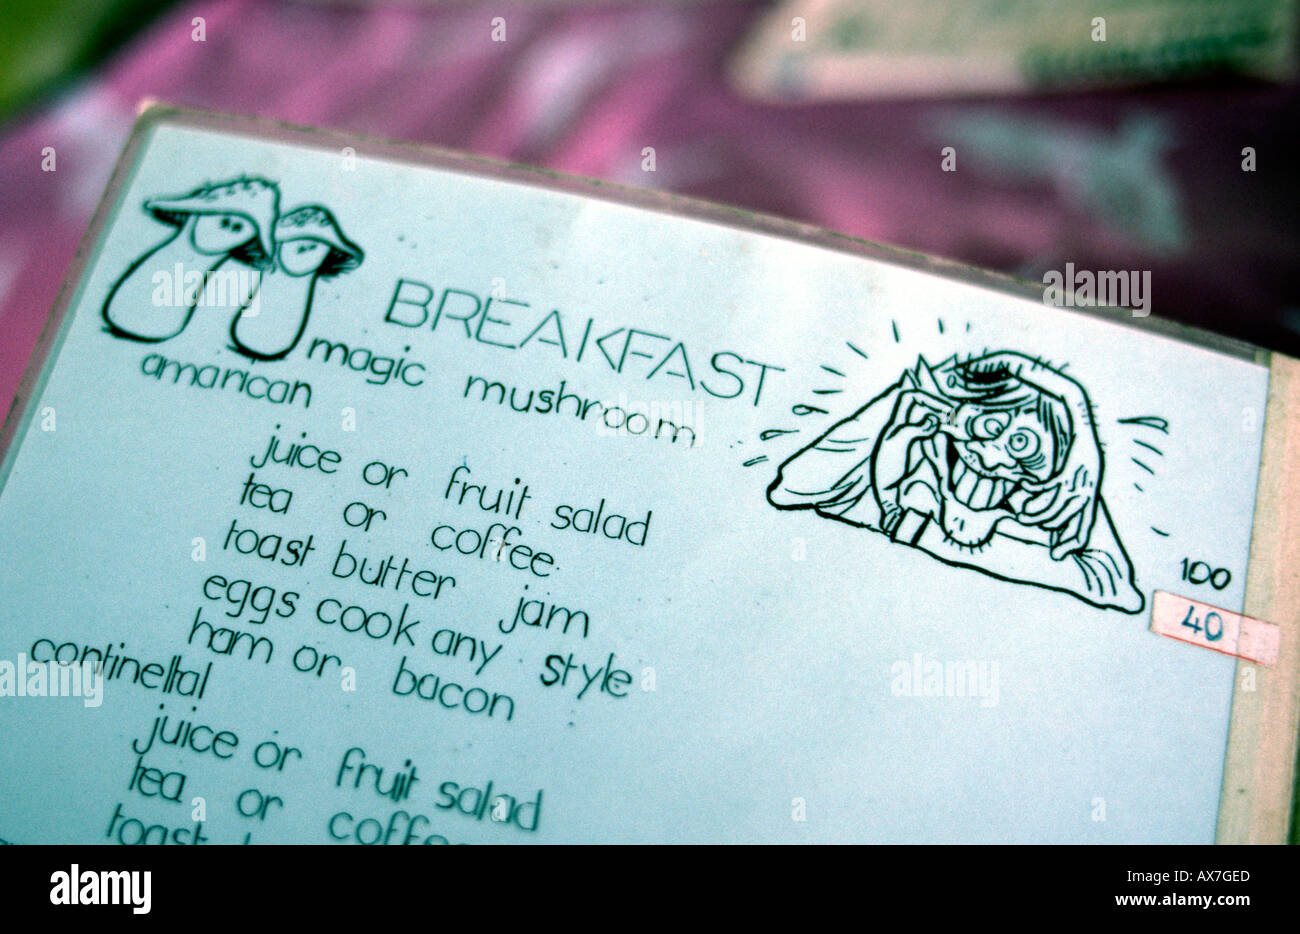 BREAKFAST
magic mushroom 100
amarican 40
juice or fruit salad
tea or coffee
toast butter jam
eggs cook any style
ham or bacon
contineltal
juice or fruit salad
tea or coffee
toast
alamy
Image ID: AX7GED
www.alamy.com